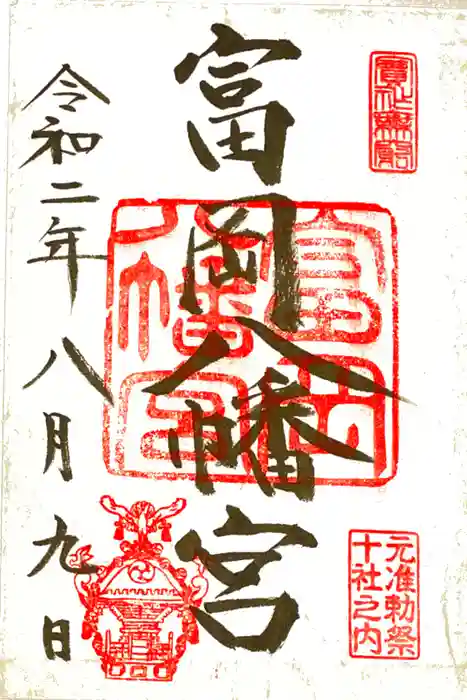 富岡八幡宮
元准勅祭
十社之内
富岡
八幡宮
令和二年八月九日